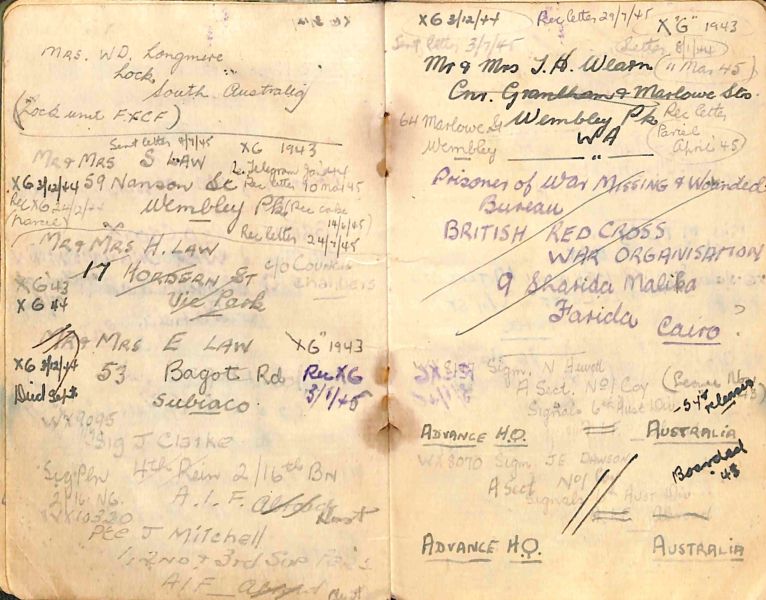 Mrs. W.D. Longmire
Lock
South Australia
(Lock unit FXCF)
Sent letter 8/7/45
XG 1943
Mr & Mrs S LAW
XG 3/12/44 59 Nanson St
Rec letter 10 Mar 45
Wembley Pk
(Rec cake 14/6/45)
(parcel)
Rec letter 24/7/45
Mr & Mrs H. LAW
17 HORDERN ST
c/o Council Chambers
XG 43
XG 44
Vic Park
Mr & Mrs E LAW
XG" 1943
XG 3/12/44
53 Bagot Rd
Rec XG 3/1/45
Died Sept
Subiaco
WX9095
Sig J Clarke
Sig Pln 4th Rein 2/16th Bn
2/16 NG.
A.I.F. Abroad
Aust
WX10330
Pte J Mitchell
1, 2nd & 3rd Sup
AIF Abroad
Aust
XG 3/12/44
Rec letter 29/7/45
X"G" 1943
Sent letter 3/7/45
Letter 8/1/44
Mr & Mrs J.H. Wearn
(" Mar 45)
Cnr. Grantham & Marlowe Sts.
64 Marlowe St
Wembley
Wembley Pk
WA
Rec letter
(Parcel April 45)
"
Prisoner of War Missing & Wounded
Bureau
BRITISH RED CROSS
WAR ORGANISATION
9 Sharida Malika
Farida Cairo ?
Sigm. N Hewett
A Sect. No 1 Coy
Signals 6th Aust Div
released
ADVANCE H.Q. AUSTRALIA
WX8070 Sigm. JE DAWSON
A Sect No 1 Coy
Signals Aust Div
Abroad
Boarded
43
ADVANCE H.Q. AUSTRALIA